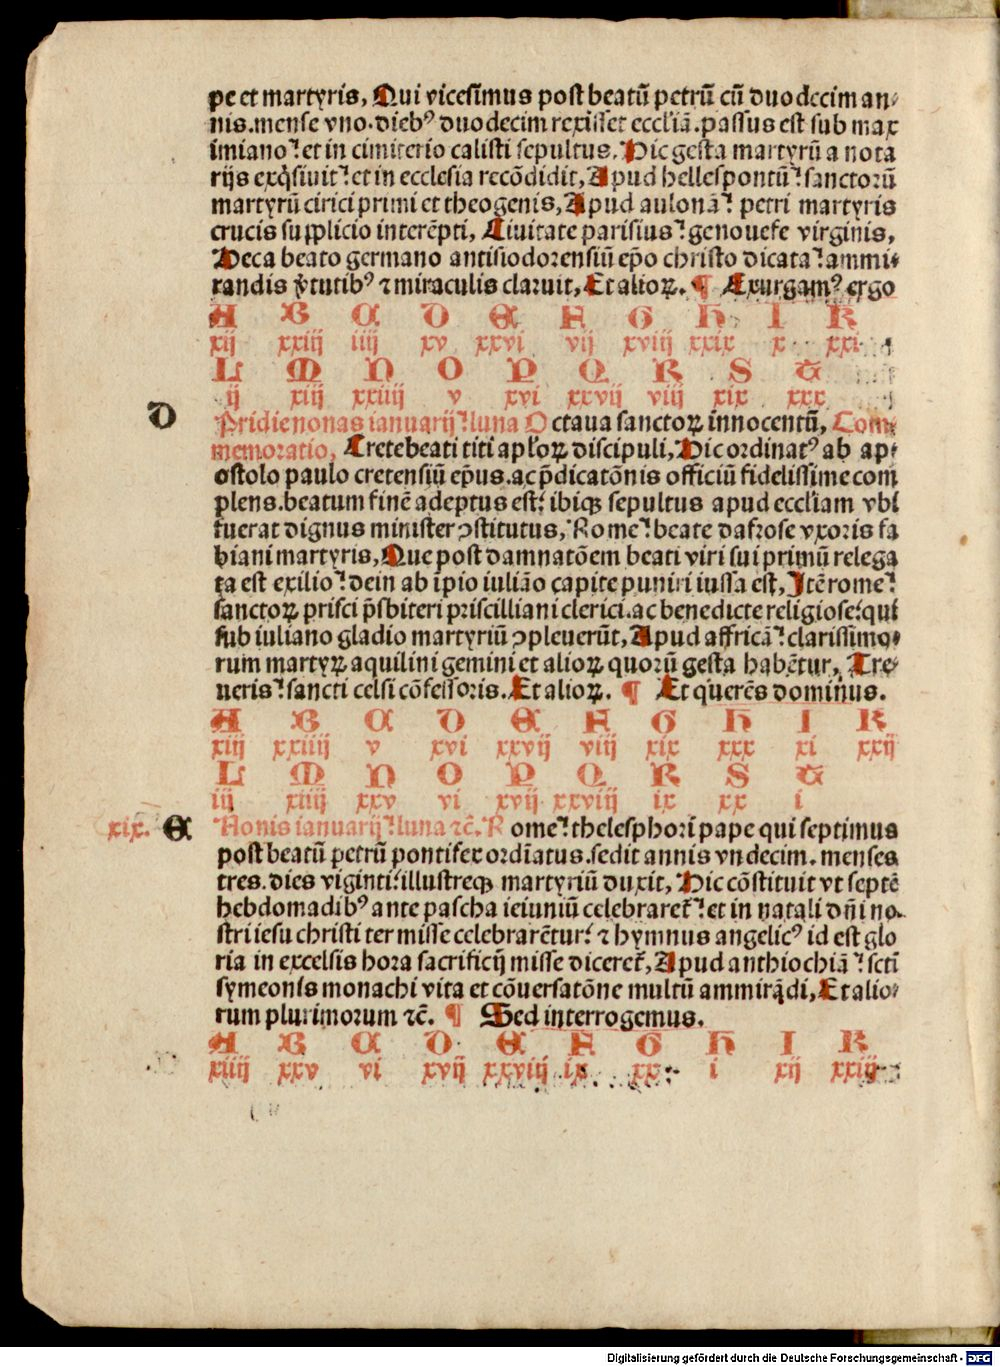 pe et martyris, Qui vicesimus post beatū petrū cū duodecim an⸗
nis.mense vno.diebꝰ duodecim rexisset eccl̄iā.passus est sub max
imiano⁊ et in cimiterio calisti sepultus. Hic gesta martyrū a nota
rijs exq̇siuit⁊ et in ecclesia recōdidit, Apud hellespontū⁊ sanctorū
martyrū cirici primi et theogenis, Apud aulonā⁊ petri martyris
crucis supplicio interēpti, Ciuitate parisius⁊ genouefe virginis,
Hec a beato germano antisiodorensiū ep̄o christo dicata⁊ ammi⸗
randis v̓tutibꝰ ⁊ miraculis claruit, Et alioꝝ. ¶ Exurgamꝰ ergo
A B C D E F G H I K
xij xxiij iiij xv xxvi vij xviij xxix x xxi
L M N O P Q R S T
ij xiij xxiiij v xvi xxvij viij xix xxx
D Pridie nonas ianuarij⁊ luna Octaua sanctoꝝ innocentū, Com⸗
memoratio, Crete beati titi apl̓oꝝ discipuli, Hic ordinatꝰ ab ap⸗
ostolo paulo cretensiū ep̄us.ac p̄dicatōnis officiū fidelissime com
plens.beatum finē adeptus est⁊ ibiqꝫ sepultus apud eccl̓iam vbi
fuerat dignus minister ꝯstitutus, Rome⁊ beate dafrose vxoris fa
biani martyris, Que post damnatōem beati viri sui primū relega
ta est exilio⁊ dein ab ip̄o iuliāo capite puniri iussa est, Itē rome⁊
sanctoꝝ prisci p̄sbiteri priscilliani clerici.ac benedicte religiose⁊ qui
sub iuliano gladio martyriū ꝯpleuerūt, Apud affricā⁊ clarissimo⸗
rum martyꝝ aquilini gemini et alioꝝ quorū gesta habētur, Tre⸗
ueris⁊ sancti celsi cōfessoris. Et alioꝝ. ¶ Et querēs dominus.
A B C D E F G H I K
xiij xxiiij v xvi xxvij viij xix xxx xi xxij
L M N O P Q R S T
iij xiiij xxv vi xvij xxviij ix xx i
xix. E Nonis ianuarij⁊ luna ⁊c̄. Rome⁊ thelesphori pape qui septimus
post beatū petrū pontifex ordīatus.sedit annis vndecim. menses
tres.dies viginti⁊ illustreqꝫ martyriū duxit, Hic cōstituit vt septē
hebdomadibꝰ ante pascha ieiuniū celebraret̄⁊ et in natali dn̄i no⸗
stri iesu christi ter misse celebrarētur⁊ ⁊ hymnus angelicꝰ id est glo
ria in excelsis hora sacrificij misse diceret̄, Apud anthiochiā⁊ sctī
symeonis monachi vita et cōuersatōne multū ammirādi, Et alio⸗
rum plurimorum ⁊c̄. ¶ Sed interrogemus.
A B C D E F G H I K
xiiij xxv vi xvij xxviij ix xx i xij xxiij
Digitalisierung gefördert durch die Deutsche Forschungsgemeinschaft - DFG